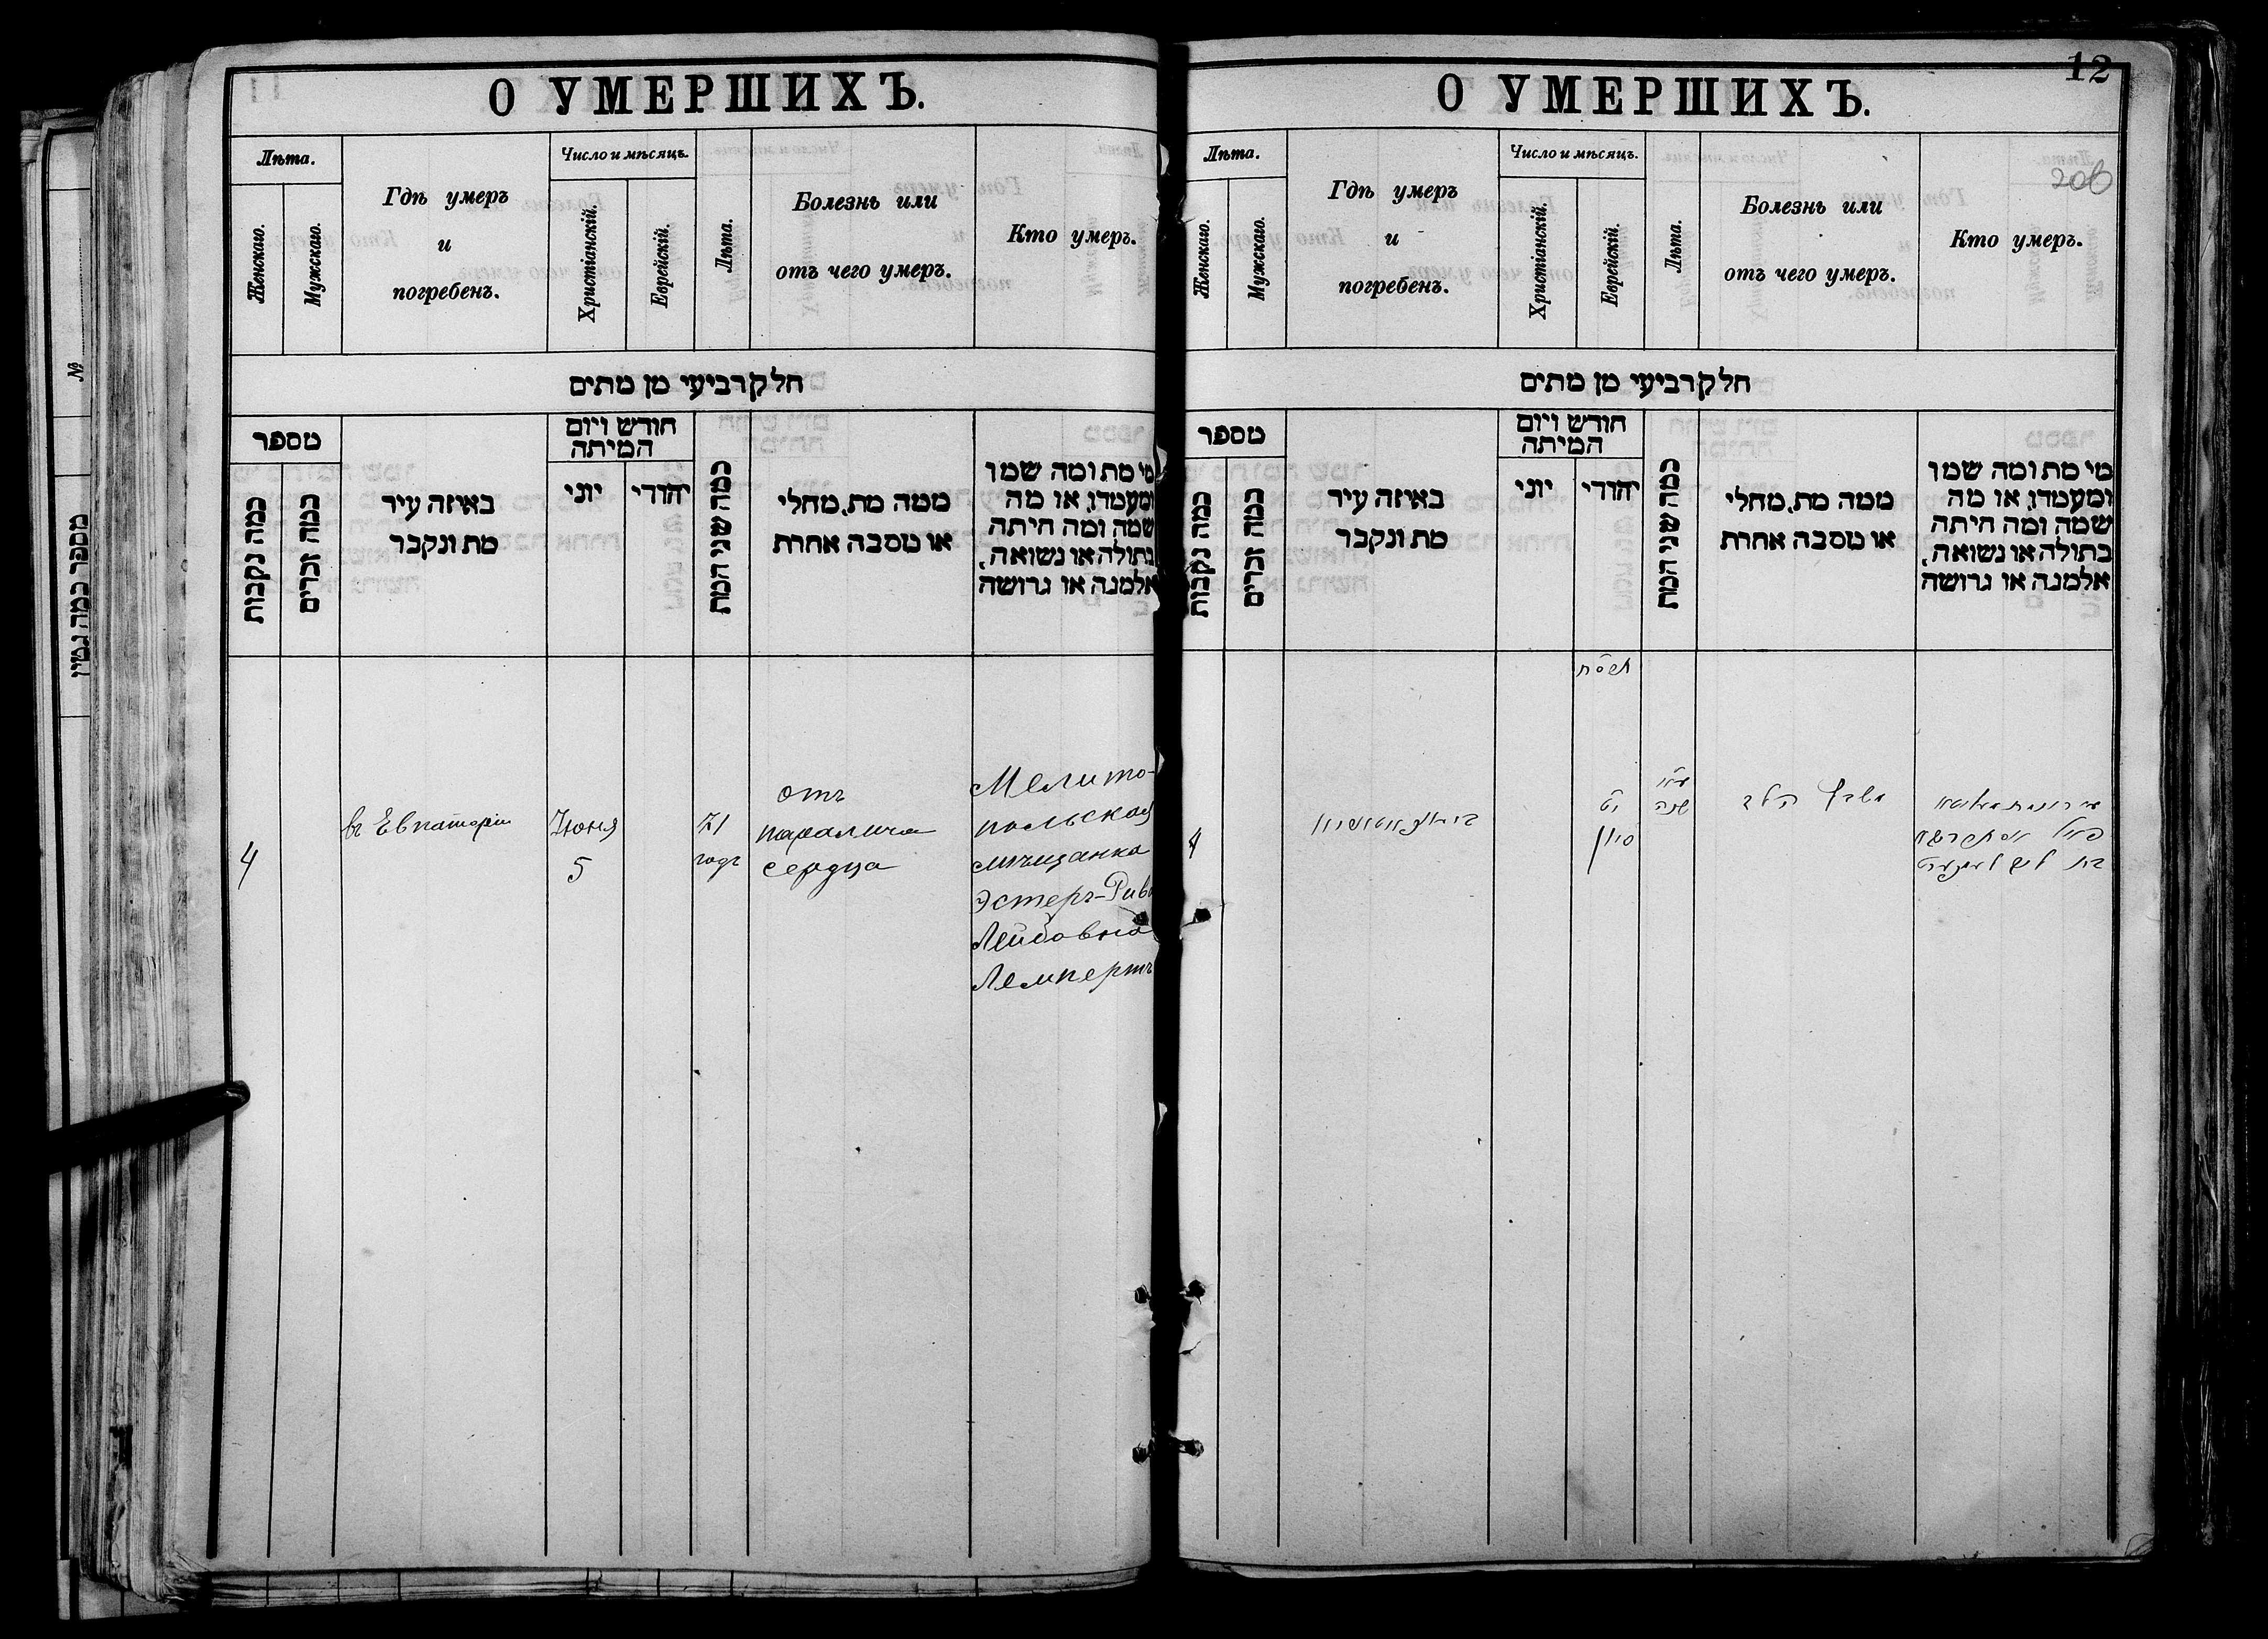 О УМЕРШИХЪ.
Лѣта.
Женскаго.
Мужскаго.
Гдѣ умеръ
и
погребенъ.
Число и мѣсяцъ.
Христіанскій.
Еврейскій.
Лѣта.
Болезнь или
отъ чего умеръ.
Кто умеръ.
חלק רביעי מן מתים
מספר
כמה נקבות
כמה זכרים
באיזה עיר
מת ונקבר
חודש ויום
המיתה
יוני
יהודי
כמה שני המת
ממה מת, מחלי
או מסבה אחרת
מי מת ומה שמו
ומעמדו, או מה
שמה ומה היתה
בתולה או נשואה,
אלמנה או גרושה
4
въ Евпаторіи
Іюня
5
71
годъ
отъ
паралича
сердца
Мелито-
польская
мѣщанка
Эстеръ-Рив
Лейбовна
Лемпертъ
12
206
О УМЕРШИХЪ.
Лѣта.
Женскаго.
Мужскаго.
Гдѣ умеръ
и
погребенъ.
Число и мѣсяцъ.
Христіанскій.
Еврейскій.
Лѣта.
Болезнь или
отъ чего умеръ.
Кто умеръ.
חלק רביעי מן מתים
מספר
כמה נקבות
כמה זכרים
באיזה עיר
מת ונקבר
חודש ויום
המיתה
יוני
יהודי
כמה שני המת
ממה מת, מחלי
או מסבה אחרת
מי מת ומה שמו
ומעמדו, או מה
שמה ומה היתה
בתולה או נשואה,
אלמנה או גרושה
4
סיון
ע״א
שנה
הלב
בת
№
מספר כמה גטין